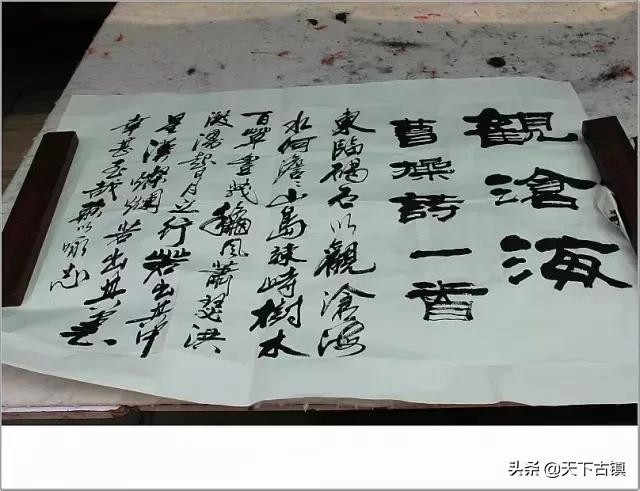 觀滄海
曹操詩一首
東臨碣石以觀滄海
水何澹〻山島竦峙樹木
百草豐茂龝風蕭瑟洪
波湧起日月之行若出其中
星漢燦爛若出其裏
幸甚至哉歌以詠志
头条 @天下古镇